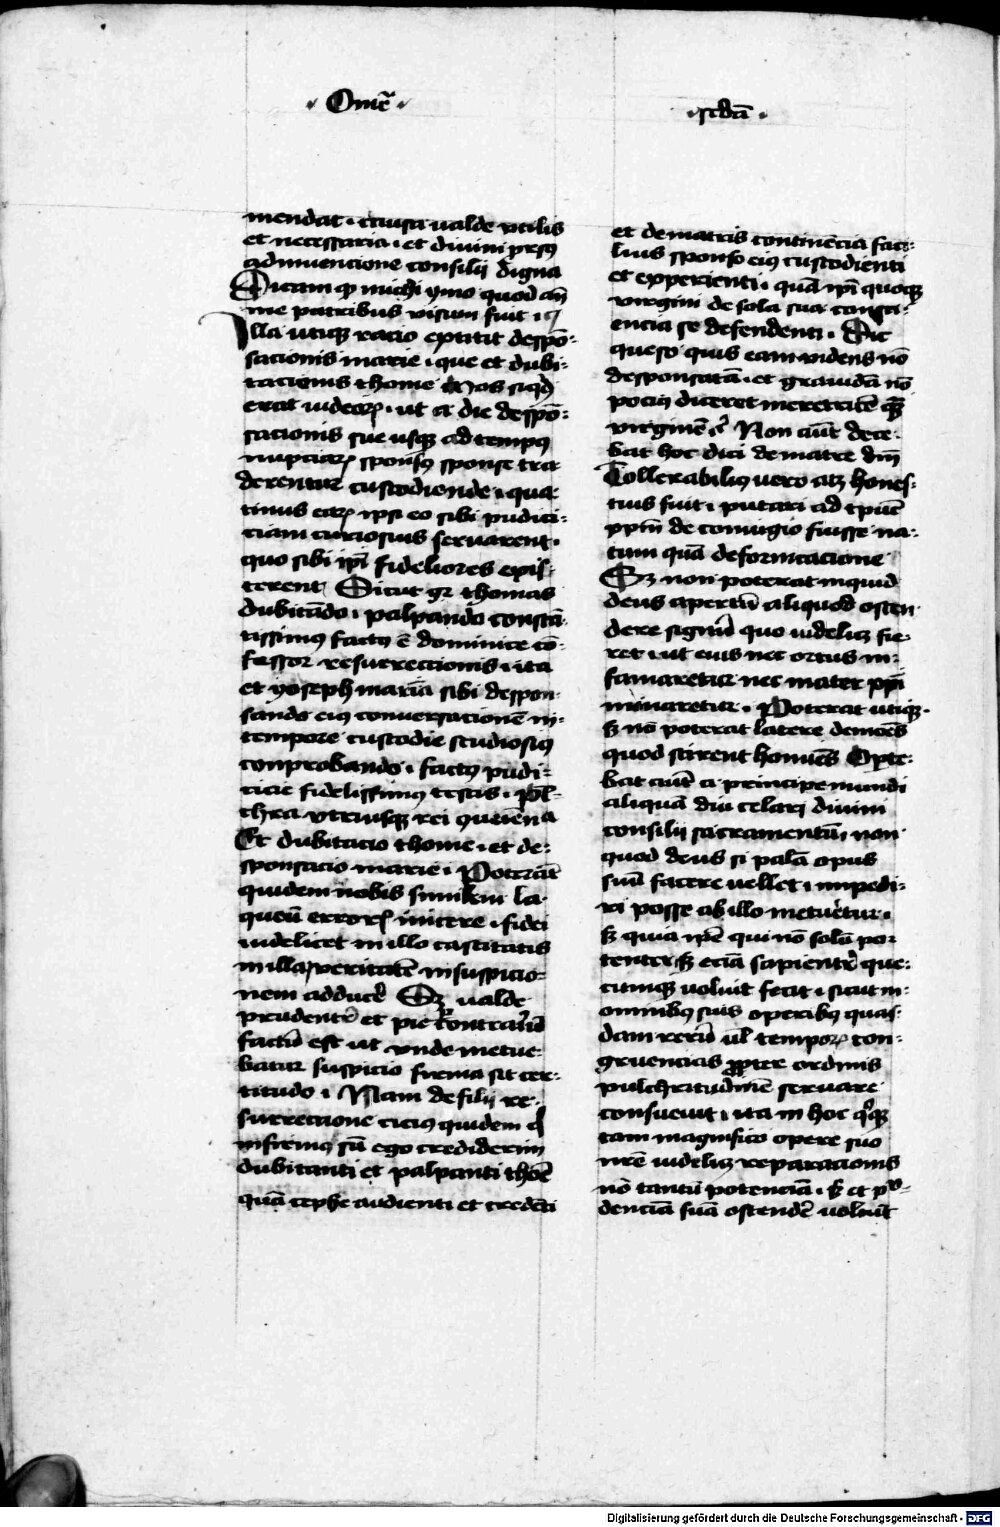 Omẽ
scđa
mendat · causa ualde vtilis
et necessaria · et diuini prsus
adinuencione consilij digna
Dicam qꝫ michi ymo quod añ
me patribus visum fuit ·
Illa utiqꝫ racio extitit despõ-
sacionis marie · que et dubi-
tacionis thome Mos siqđ
erat iudeoꝝ · ut a die despõ-
sacionis sue usqꝫ ad tempꝯ
nupciaꝝ sponsꝯ sponse tra
derentur custodiende · qua
tinus eaꝝ ipsi eo sibi pudici-
ciam curiosius seruarent ·
quo sibi ip̃i fideliores exis-
terent Sicut gͬ thomas
dubitãdo · palpando constã-
tissimꝯ factꝯ ẽ dominice cõ-
fessor resurrectionis · ita
et yoseph mariã sibi despon-
sando eiꝯ conuersacionẽ in-
tempore custodie studiosiꝯ
conprobando · factꝯ pudi-
cicie fidelissimꝯ testis · Pul-
chra vtriusqꝫ rei ꝯueniẽna
Et dubitacio thome · et de-
sponsacio marie · Poterãt
quidem nobis similem la-
queũ erroris iniicere · fidei
uidelicet in illo castitatis
in illa veritatẽ in suspicio-
nem adducẽ Sꝫ ualde
prudentẽ et pie contrariũ
factũ est ut vnde metue-
batur suspicio firma sit cer-
titudo · Nam de filij re-
surrectione cicius quidem q
infirmꝯ sũ ego crediderim
dubitanti et palpanti thõe
quã cephe audienti et credẽti
et de matris continẽcia faci-
lius sponso eiꝯ custodienti
et experienti · quã ip̃i quoqꝫ
virgini de sola sua consci-
encia se defendenti · Dic
queso quis eam uidens nõ
desponsatã · et grauidã nõ
pociꝯ diceret meretricẽ qꝫ
virginẽ Non aũt dece-
bat hoc dici de matre dñi
Tollerabiliꝯ uero atqꝫ hones-
tius fuit · putari ad tpus
xpm̃ de coniugio fuisse na-
tum quã de fornicacione
Sꝫ non poterat inquid
deus apertũ aliquod osten
dere signũ quo uidelicꝫ fie-
ret · ut eius nec ortus in-
famaretur nec mater xp̃i
minaretur · Poterat utiqꝫ ·
sꝫ nõ poterat latere demões
quod scirent homines Opte-
bat aũt a principe mundi
aliquã diu celari diuini
consilij sacramentũ · non
quod deus si palã opus
suũ facere uellet · inpedi-
ri posse ab illo metueretur ·
sꝫ quia ip̃e qui nõ solũ po-
tenter sꝫ eciã sapientẽ que-
cumqꝫ uoluit fecit · sicut in-
omnibꝯ suis operibꝯ quas-
dam rerũ ul tempoꝝ con-
gruencias propter ordinis
pulchritudinẽ seruare
consueuit · ita in hoc qͦqꝫ
tam magnifico opere suo
nrẽ uidelicꝫ reparacionis
nõ tantũ potenciã · sꝫ et pͦ-
denciã suã ostendẽ uoluit
Digitalisierung gefördert durch die Deutsche Forschungsgemeinschaft - DFG